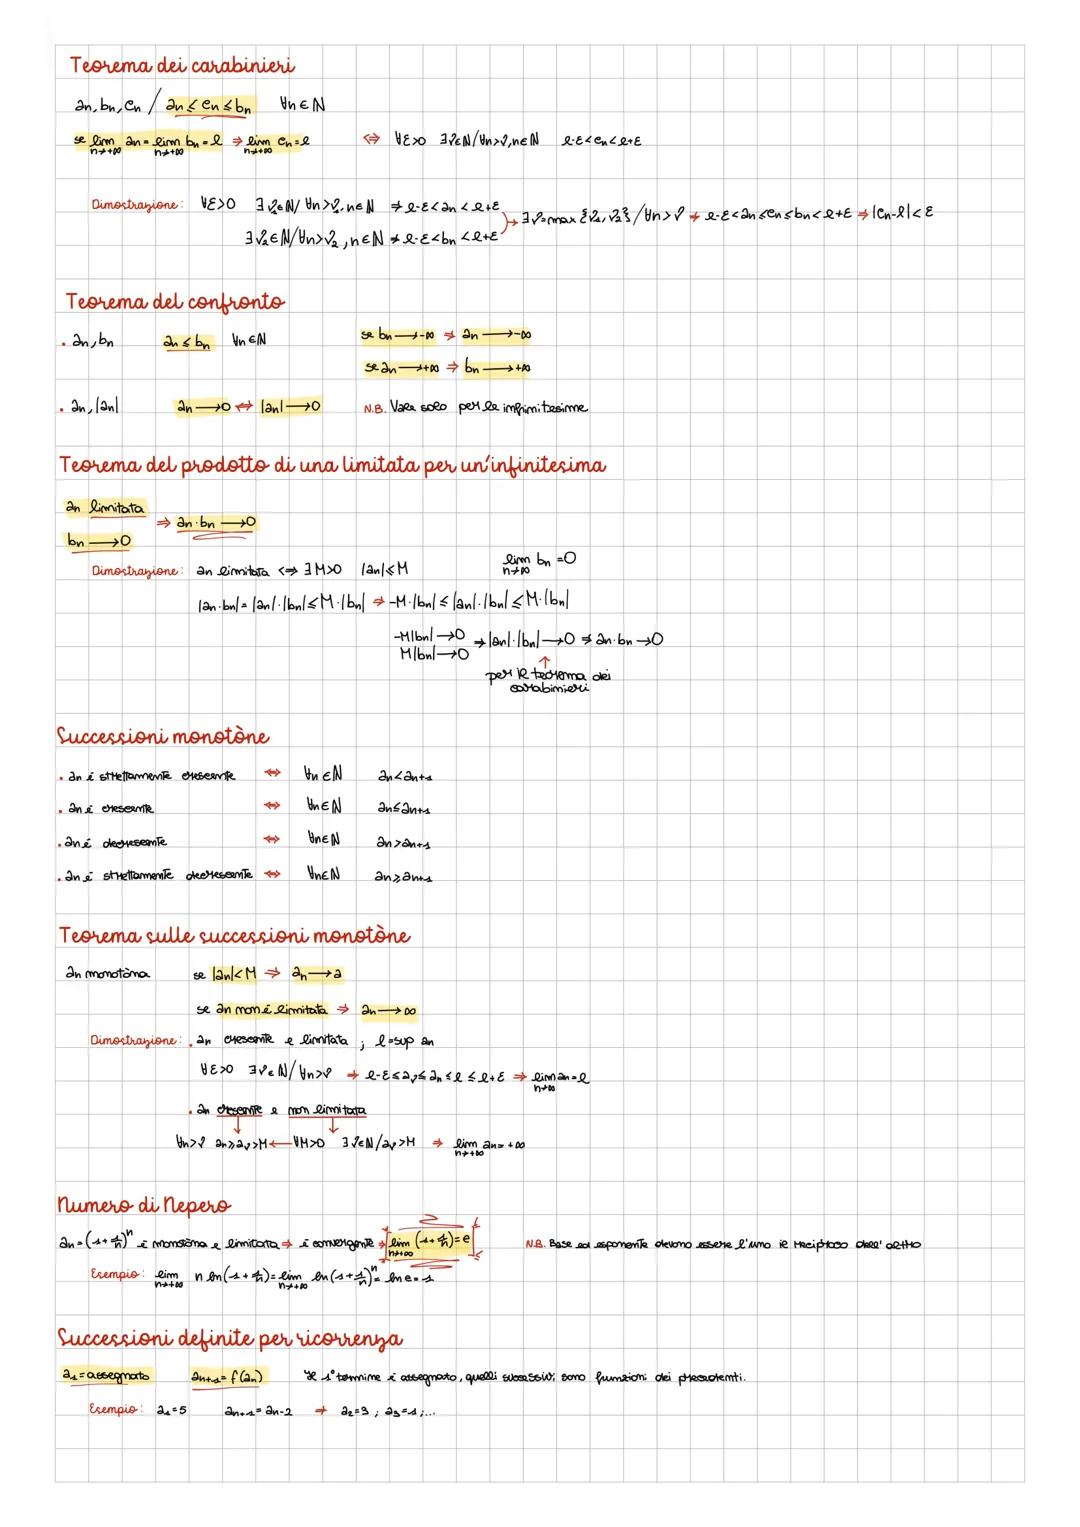 Teorema dei carabinieri
an, bn, cn / an ≤ cn ≤ bn ∀n∈ℕ
se lim n→+∞ an = lim n→+∞ bn = l ⇒ lim n→+∞ cn = l ⇔ ∀ε>0 ∃ν∈ℕ/∀n>ν, n∈ℕ l-ε<cn<l+ε
Dimostrazione: ∀ε>0 ∃ν₁∈ℕ/∀n>ν₁, n∈ℕ ⇒ l-ε<an<l+ε
∃ν₂∈ℕ/∀n>ν₂, n∈ℕ ⇒ l-ε<bn<l+ε → ∃ν=max{ν₁, ν₂}/∀n>ν ⇒ l-ε<an≤cn≤bn<l+ε ⇒ |cn-l|<ε
Teorema del confronto
. an, bn an ≤ bn ∀n∈ℕ se bn→-∞ ⇒ an→-∞
se an→+∞ ⇒ bn→+∞
. an, |an| an→0 ⇔ |an|→0 N.B. Vale solo per le infinitesime
Teorema del prodotto di una limitata per un'infinitesima
an limitata
⇒ an·bn→0
bn→0
Dimostrazione: an limitata ⇔ ∃M>0 |an|≤M lim n→+∞ bn=0
|an·bn|=|an|·|bn|≤M·|bn| ⇒ -M·|bn|≤|an|·|bn|≤M·|bn|
-M|bn|→0
M|bn|→0 ⇒ |an|·|bn|→0 ⇒ an·bn→0
↑
per il teorema dei
carabinieri
Successioni monotòne
. an è strettamente crescente ⇔ ∀n∈ℕ an<an+1
. an è crescente ⇔ ∀n∈ℕ an≤an+1
. an è decrescente ⇔ ∀n∈ℕ an>an+1
. an è strettamente decrescente ⇔ ∀n∈ℕ an≥an+1
Teorema sulle successioni monotòne
an monotòna se |an|<M ⇒ an→a
se an non è limitata ⇒ an→∞
Dimostrazione: . an crescente e limitata ; l=sup an
∀ε>0 ∃ν∈ℕ/∀n>ν ⇒ l-ε≤aν≤an≤l≤l+ε ⇒ lim n→∞ an=l
. an crescente e non limitata
∀n>ν an≥aν>M ← ∀M>0 ∃ν∈ℕ/aν>M ⇒ lim n→+∞ an=+∞
Numero di Nepero
an=(1+1/n)ⁿ è monotòna e limitata ⇒ è convergente ⇒ lim n→+∞ (1+1/n)ⁿ=e N.B. Base ed esponente devono essere l'uno il reciproco dell'altro
Esempio: lim n→+∞ n ln(1+1/n)= lim n→+∞ ln(1+1/n)ⁿ= ln e=1
Successioni definite per ricorrenza
a₁=assegnato an+1=f(an) Il 1° termine è assegnato, quelli successivi sono funzioni dei precedenti.
Esempio: a₁=5 an+1=an-2 ⇒ a₂=3; a₃=1;...